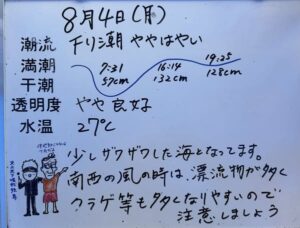 8月4日(月)
潮流 下り潮 ややはやい
満潮 7:31 16:14 19:25
干潮 57cm 132cm 128cm
透明度 やや良好
水温 27℃
少しザワザワした海となってます。
南西の風の時は、漂流物が多く
クラゲ等も多くなりやすいので
注意しましょう